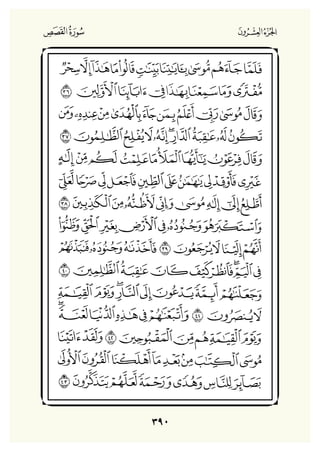 سُورَةُ القَصَصِ الجُزْءُ العِشْرُونَ
فَلَمَّا جَآءَهُم مُّوسَىٰ بِـَٔايَـٰتِنَا بَيِّنَـٰتٍ قَالُوا۟ مَا هَـٰذَآ إِلَّا سِحْرٌ
مُّفْتَرًى وَمَا سَمِعْنَا بِهَـٰذَا فِىٓ ءَابَآئِنَا ٱلْأَوَّلِينَ ٣٦
وَقَالَ مُوسَىٰ رَبِّىٓ أَعْلَمُ بِمَن جَآءَ بِٱلْهُدَىٰ مِنْ عِندِهِۦ وَمَن
تَكُونُ لَهُۥ عَـٰقِبَةُ ٱلدَّارِ ۖ إِنَّهُۥ لَا يُفْلِحُ ٱلظَّـٰلِمُونَ ٣٧
وَقَالَ فِرْعَوْنُ يَـٰٓأَيُّهَا ٱلْمَلَأُ مَا عَلِمْتُ لَكُم مِّنْ إِلَـٰهٍ
غَيْرِى فَأَوْقِدْ لِى يَـٰهَـٰمَـٰنُ عَلَى ٱلطِّينِ فَٱجْعَل لِّى صَرْحًا لَّعَلِّىٓ
أَطَّلِعُ إِلَىٰٓ إِلَـٰهِ مُوسَىٰ وَإِنِّى لَأَظُنُّهُۥ مِنَ ٱلْكَـٰذِبِينَ ٣٨
وَٱسْتَكْبَرَ هُوَ وَجُنُودُهُۥ فِى ٱلْأَرْضِ بِغَيْرِ ٱلْحَقِّ وَظَنُّوٓا۟
أَنَّهُمْ إِلَيْنَا لَا يُرْجَعُونَ ٣٩ فَأَخَذْنَـٰهُ وَجُنُودَهُۥ فَنَبَذْنَـٰهُمْ
فِى ٱلْيَمِّ ۖ فَٱنظُرْ كَيْفَ كَانَ عَـٰقِبَةُ ٱلظَّـٰلِمِينَ ٤٠
وَجَعَلْنَـٰهُمْ أَئِمَّةً يَدْعُونَ إِلَى ٱلنَّارِ ۖ وَيَوْمَ ٱلْقِيَـٰمَةِ
لَا يُنصَرُونَ ٤١ وَأَتْبَعْنَـٰهُمْ فِى هَـٰذِهِ ٱلدُّنْيَا لَعْنَةً ۖ
وَيَوْمَ ٱلْقِيَـٰمَةِ هُم مِّنَ ٱلْمَقْبُوحِينَ ٤٢ وَلَقَدْ ءَاتَيْنَا
مُوسَى ٱلْكِتَـٰبَ مِنۢ بَعْدِ مَآ أَهْلَكْنَا ٱلْقُرُونَ ٱلْأُولَىٰ
بَصَآئِرَ لِلنَّاسِ وَهُدًى وَرَحْمَةً لَّعَلَّهُمْ يَتَذَكَّرُونَ ٤٣
٣٩٠